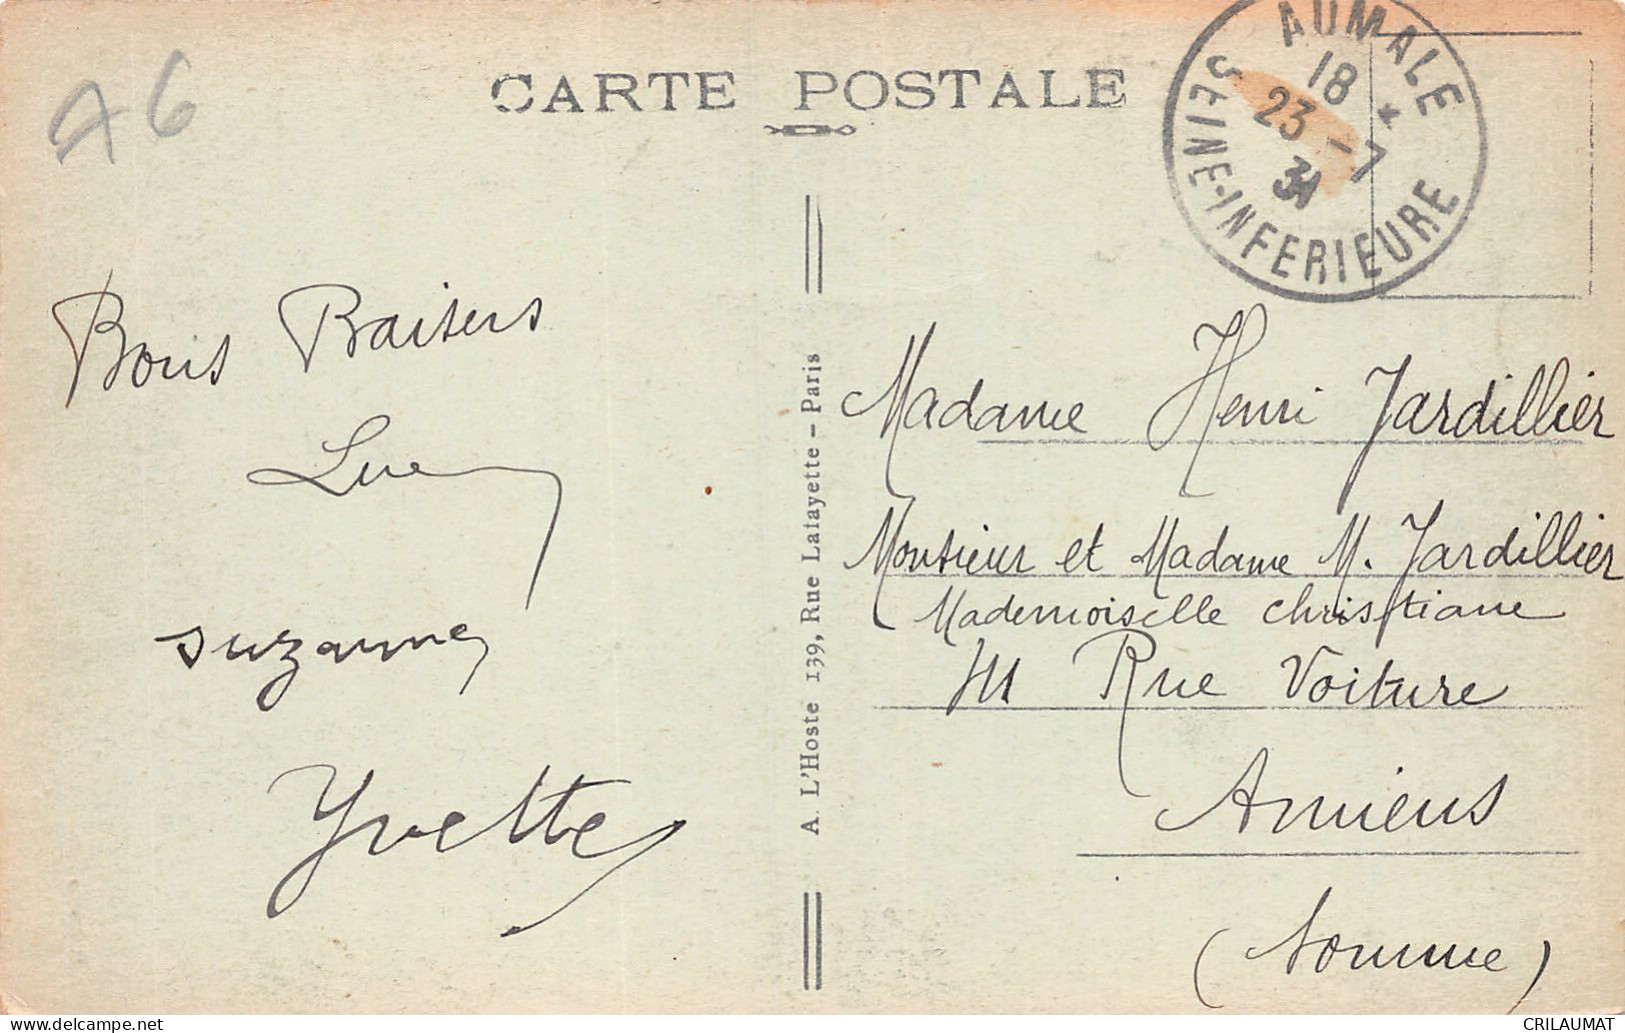 A6
CARTE POSTALE
AUMALE
18
23 - 7
34
SEINE-INFERIEURE
Bons Baisers
Luce
Suzanne
Yvette
A. L'Hoste 139, Rue Lafayette - Paris
Madame Henri Jardillier
Monsieur et Madame M. Jardillier
Mademoiselle Christiane
Rue Voiture
Amiens
(Somme)
CRILAUMAT